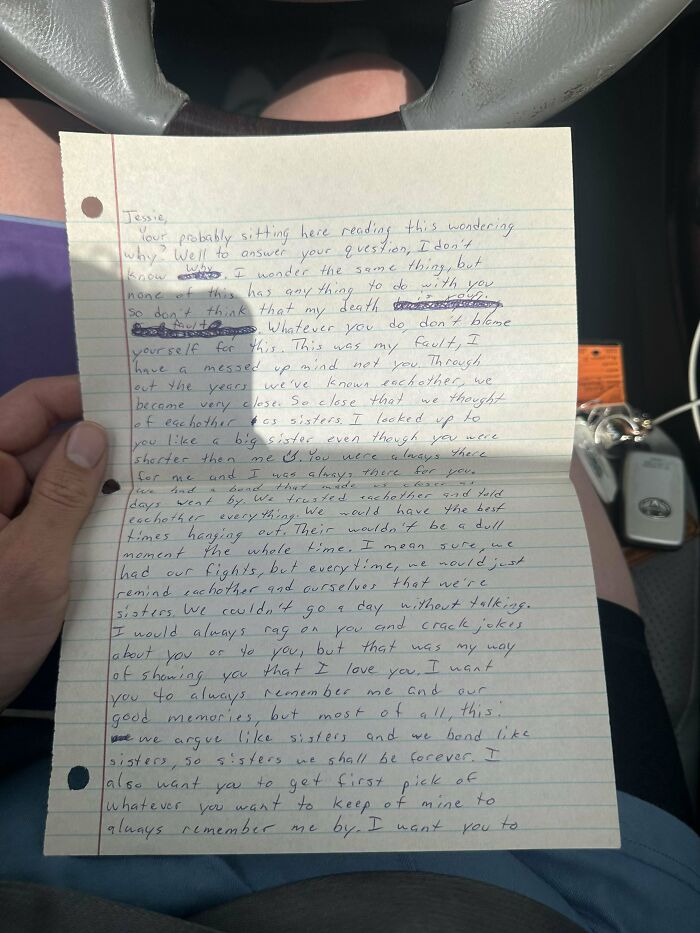 Jessie,
Your probably sitting here reading this wondering
why? Well to answer your question, I don't
know why. I wonder the same thing, but
none of this has anything to do with you
so don't think that my death is your
fault. Whatever you do, don't blame
yourself for this. This was my fault, I
have a messed up mind not you. Through
out the years we've known eachother, we
became very close. So close that we thought
of eachother as sisters. I looked up to
you like a big sister even though you were
shorter then me. You were always there
for me and I was always there for you.
We had a bond that made us closer as
days went by. We trusted eachother and told
eachother everything. We would have the best
times hanging out. Their wouldn't be a dull
moment the whole time. I mean sure, we
had our fights, but everytime, we would just
remind eachother and ourselves that we're
sisters. We couldn't go a day without talking.
I would always rag on you and crack jokes
about you or to you, but that was my way
of showing you that I love you. I want
you to always remember me and our
good memories, but most of all, this:
we argue like sisters and we bond like
sisters, so sisters we shall be forever. I
also want you to get first pick of
whatever you want to keep of mine to
always remember me by. I want you to